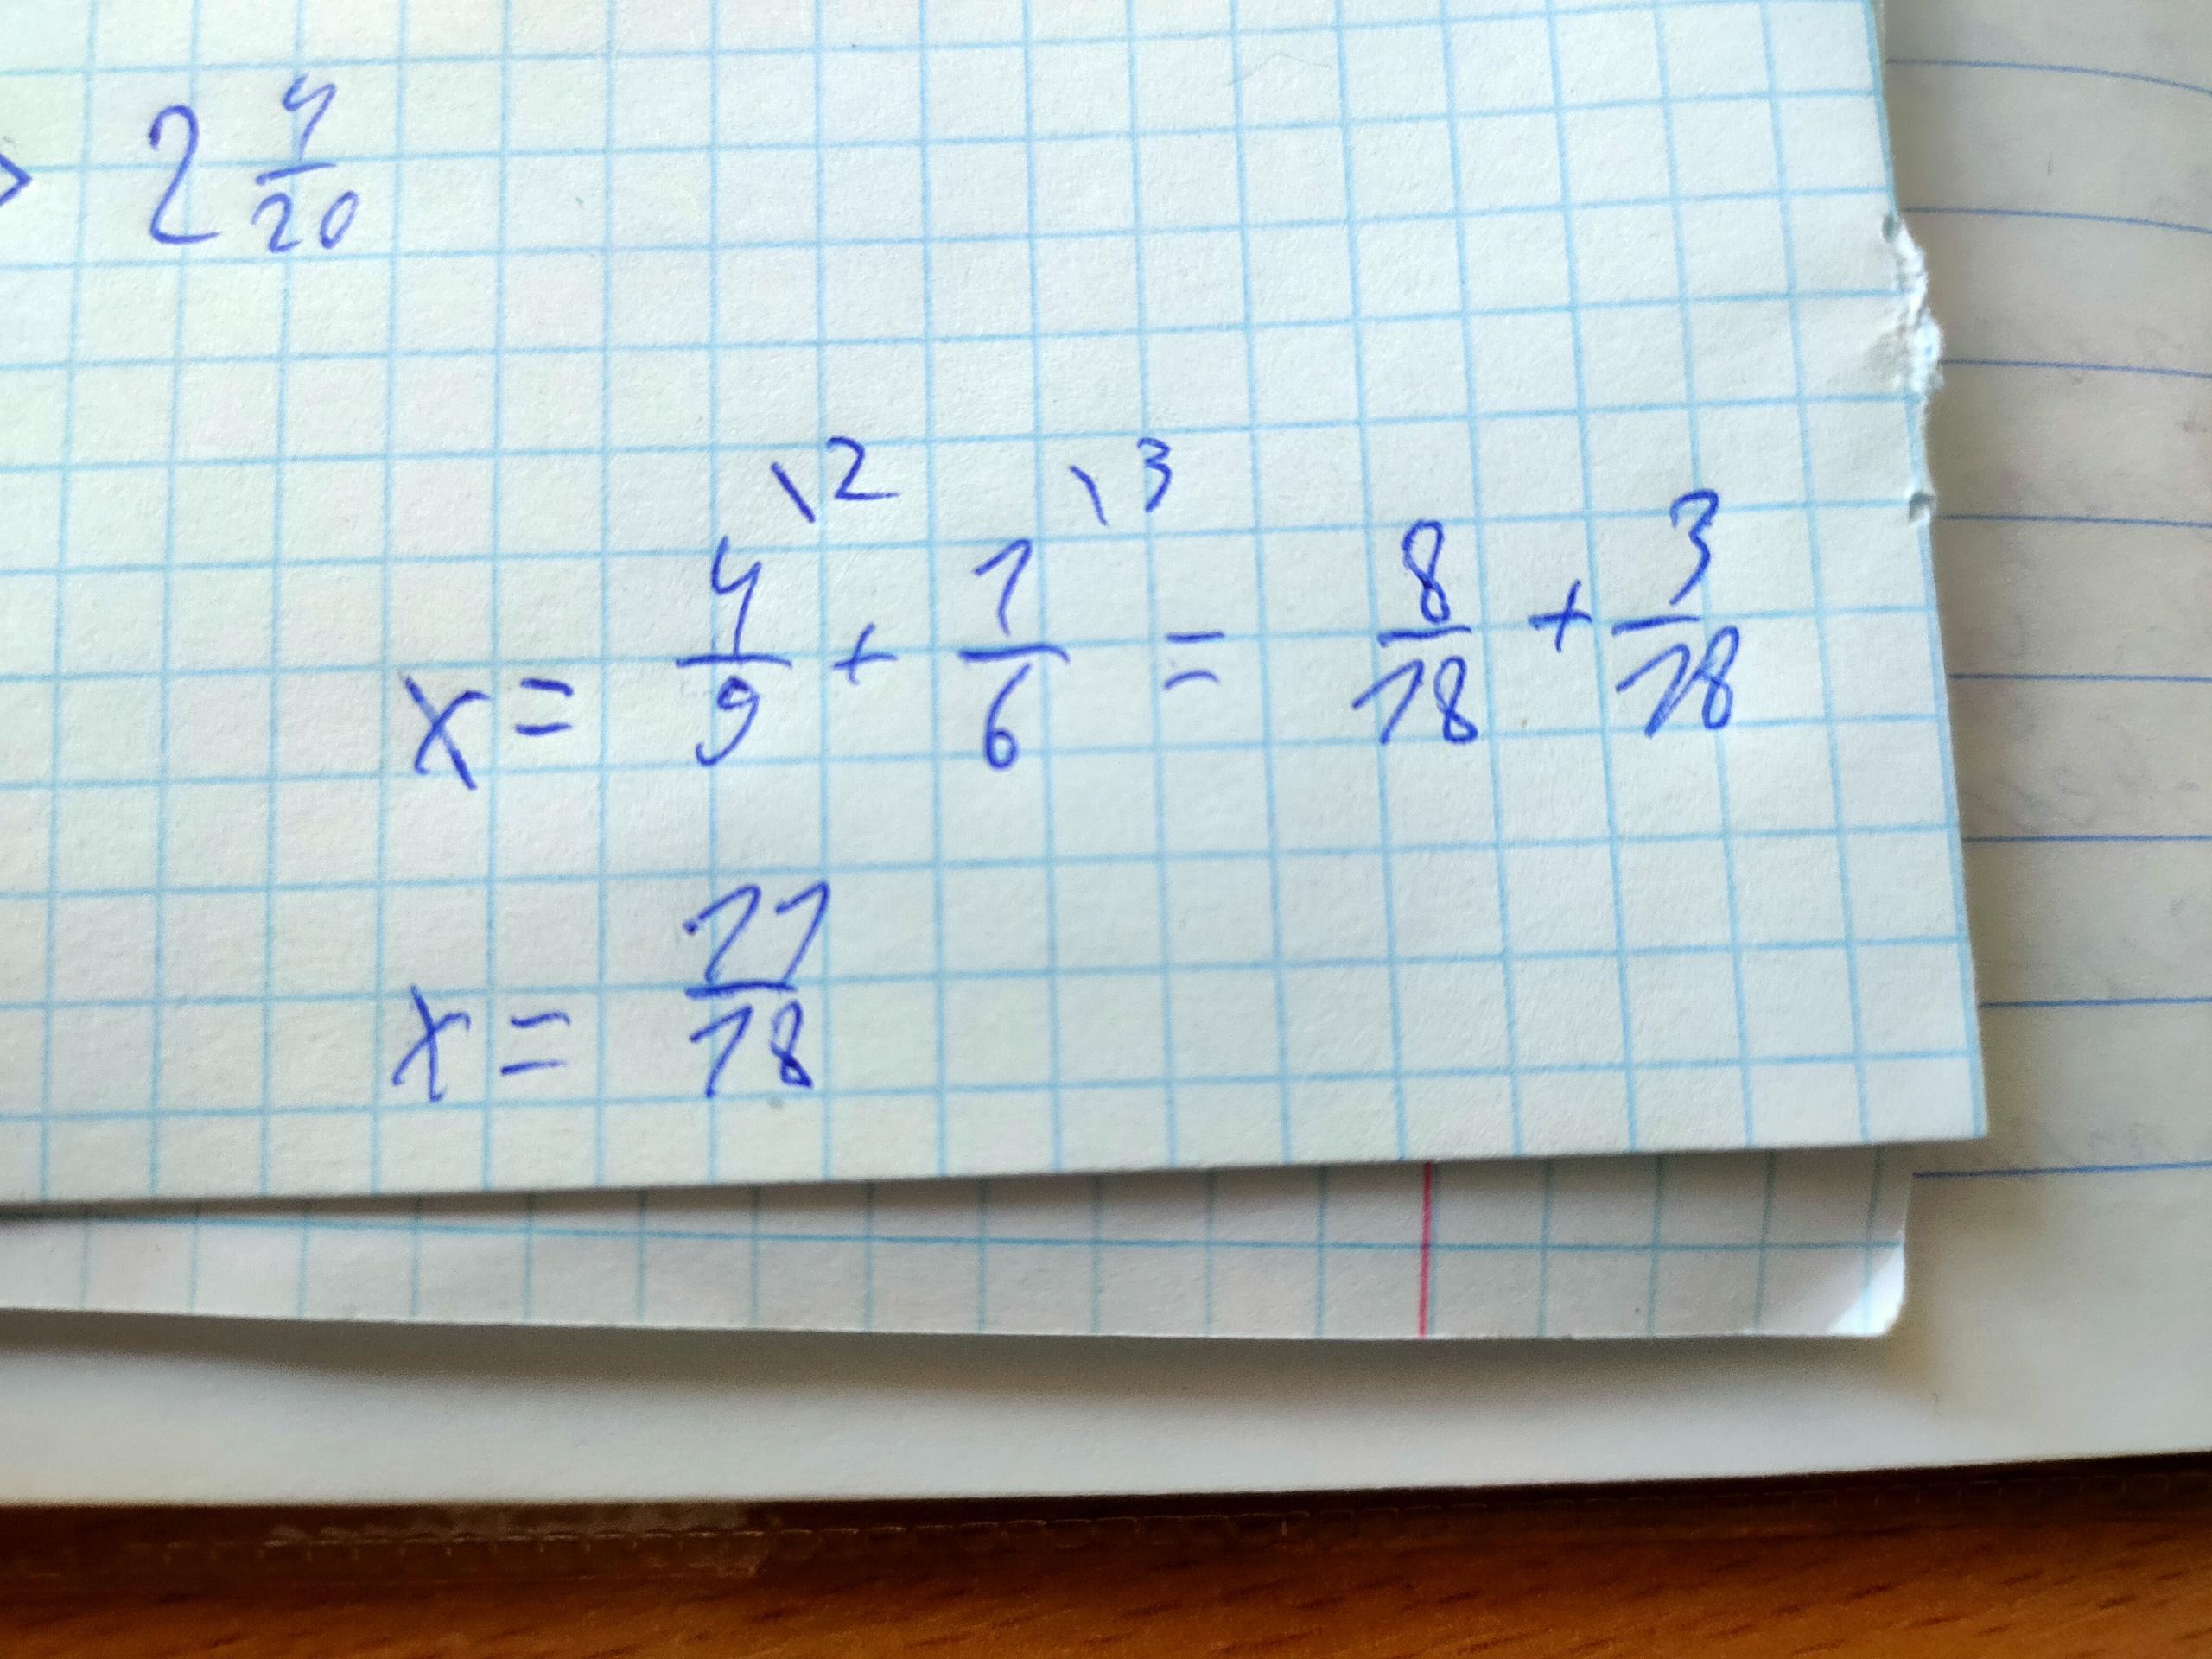 > 2 4/20
x = 4/9 \2 + 1/6 \3 = 8/18 + 3/18
x = 11/18